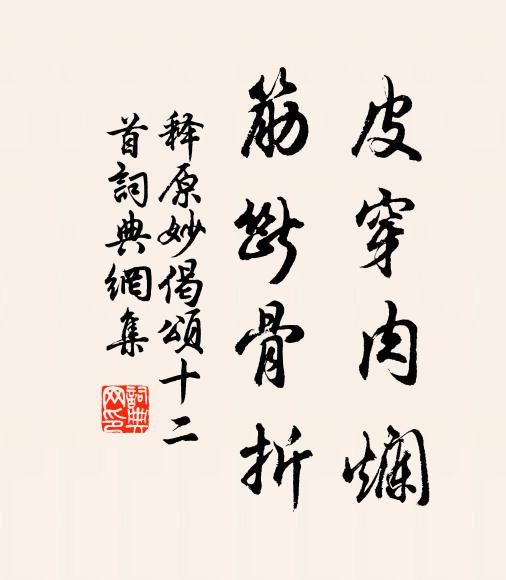 皮穿肉爛
筋斷骨折
释原妙偈頌十二
首詞典網集
詞典
网印